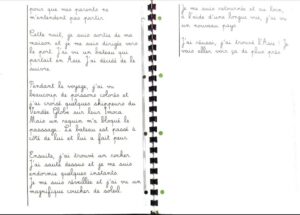 pour que mes parents ne
m'entendent pas partir.
Cette nuit, je suis sortie de ma
maison et je me suis dirigée vers
le port. J'ai vu un bateau qui
partait en Asie. J'ai décidé de le
suivre.
Pendant le voyage, j'ai vu
beaucoup de poissons colorés et
j'ai croisé quelques skippeurs du
Vendée Globe sur leur Imoca.
Mais un requin m'a bloqué le
passage. Le bateau est passé à
côté de lui et lui a fait peur.
Ensuite, j'ai trouvé un rocher.
J'ai sauté dessus et je me suis
endormie quelques instants.
Je me suis réveillée et j'ai vu un
magnifique coucher de soleil.
Je me suis retournée et au loin,
à l'aide d'une longue vue, j'ai vu
un nouveau pays.
J'ai réussi, j'ai trouvé l'Asie. Je
vais aller voir ça de plus près.